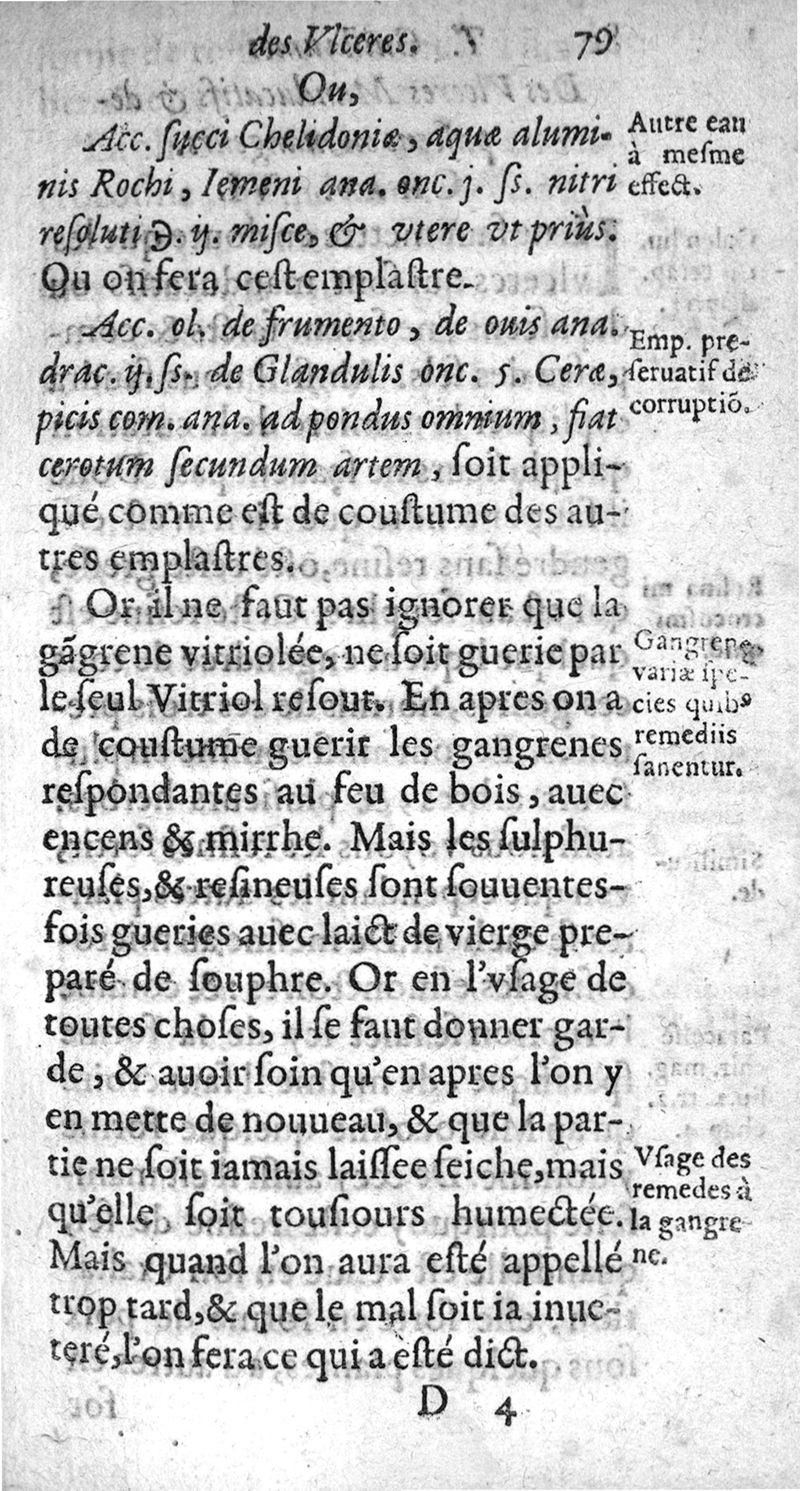 des Vlceres. 79
Ou,
Acc. ſucci Chelidoniæ, aquæ alumi-
nis Rochi, Iemeni ana. onc. j. ſs. nitri
reſoluti ℈. ij. miſce, & vtere vt priùs.
Ou on fera ceſt emplaſtre.
Acc. ol. de frumento, de ouis ana.
drac. ij. ſs. de Glandulis onc. 5. Ceræ,
picis com. ana. ad pondus omnium, fiat
cerotum ſecundum artem, ſoit appli-
qué comme eſt de couſtume des au-
tres emplaſtres.
Or il ne faut pas ignorer que la
gãgrene vitriolée, ne ſoit guerie par
le ſeul Vitriol reſout. En apres on a
de couſtume guerir les gangrenes
reſpondantes au feu de bois, auec
encens & mirrhe. Mais les ſulphu-
reuſes, & reſineuſes ſont ſouuentes-
fois gueries auec laict de vierge pre-
paré de ſouphre. Or en l'vſage de
toutes choſes, il ſe faut donner gar-
de, & auoir ſoin qu'en apres l'on y
en mette de nouueau, & que la par-
tie ne ſoit iamais laiſſee ſeiche, mais
qu'elle ſoit touſiours humectée.
Mais quand l'on aura eſté appellé
trop tard, & que le mal ſoit ia inue-
teré, l'on fera ce qui a eſté dict.
D 4
Autre eau
à meſme
effect.
Emp. pre-
ſeruatif de
corruptiõ.
Gangrene
variæ ſpe-
cies quibꝰ
remediis
ſanentur.
Vſage des
remedes à
la gangre
ne.